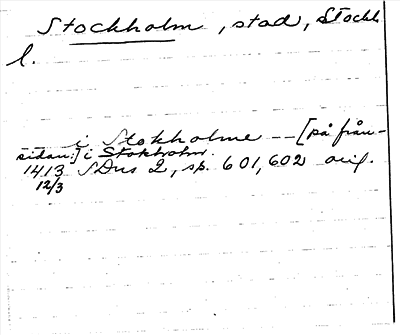 Stockholm, stad, Stockh.
l.
i Stokholme -- [på från-
sidan:] i Stokholm.
1413 SDns 2, sp. 601, 602 orig.
12/3